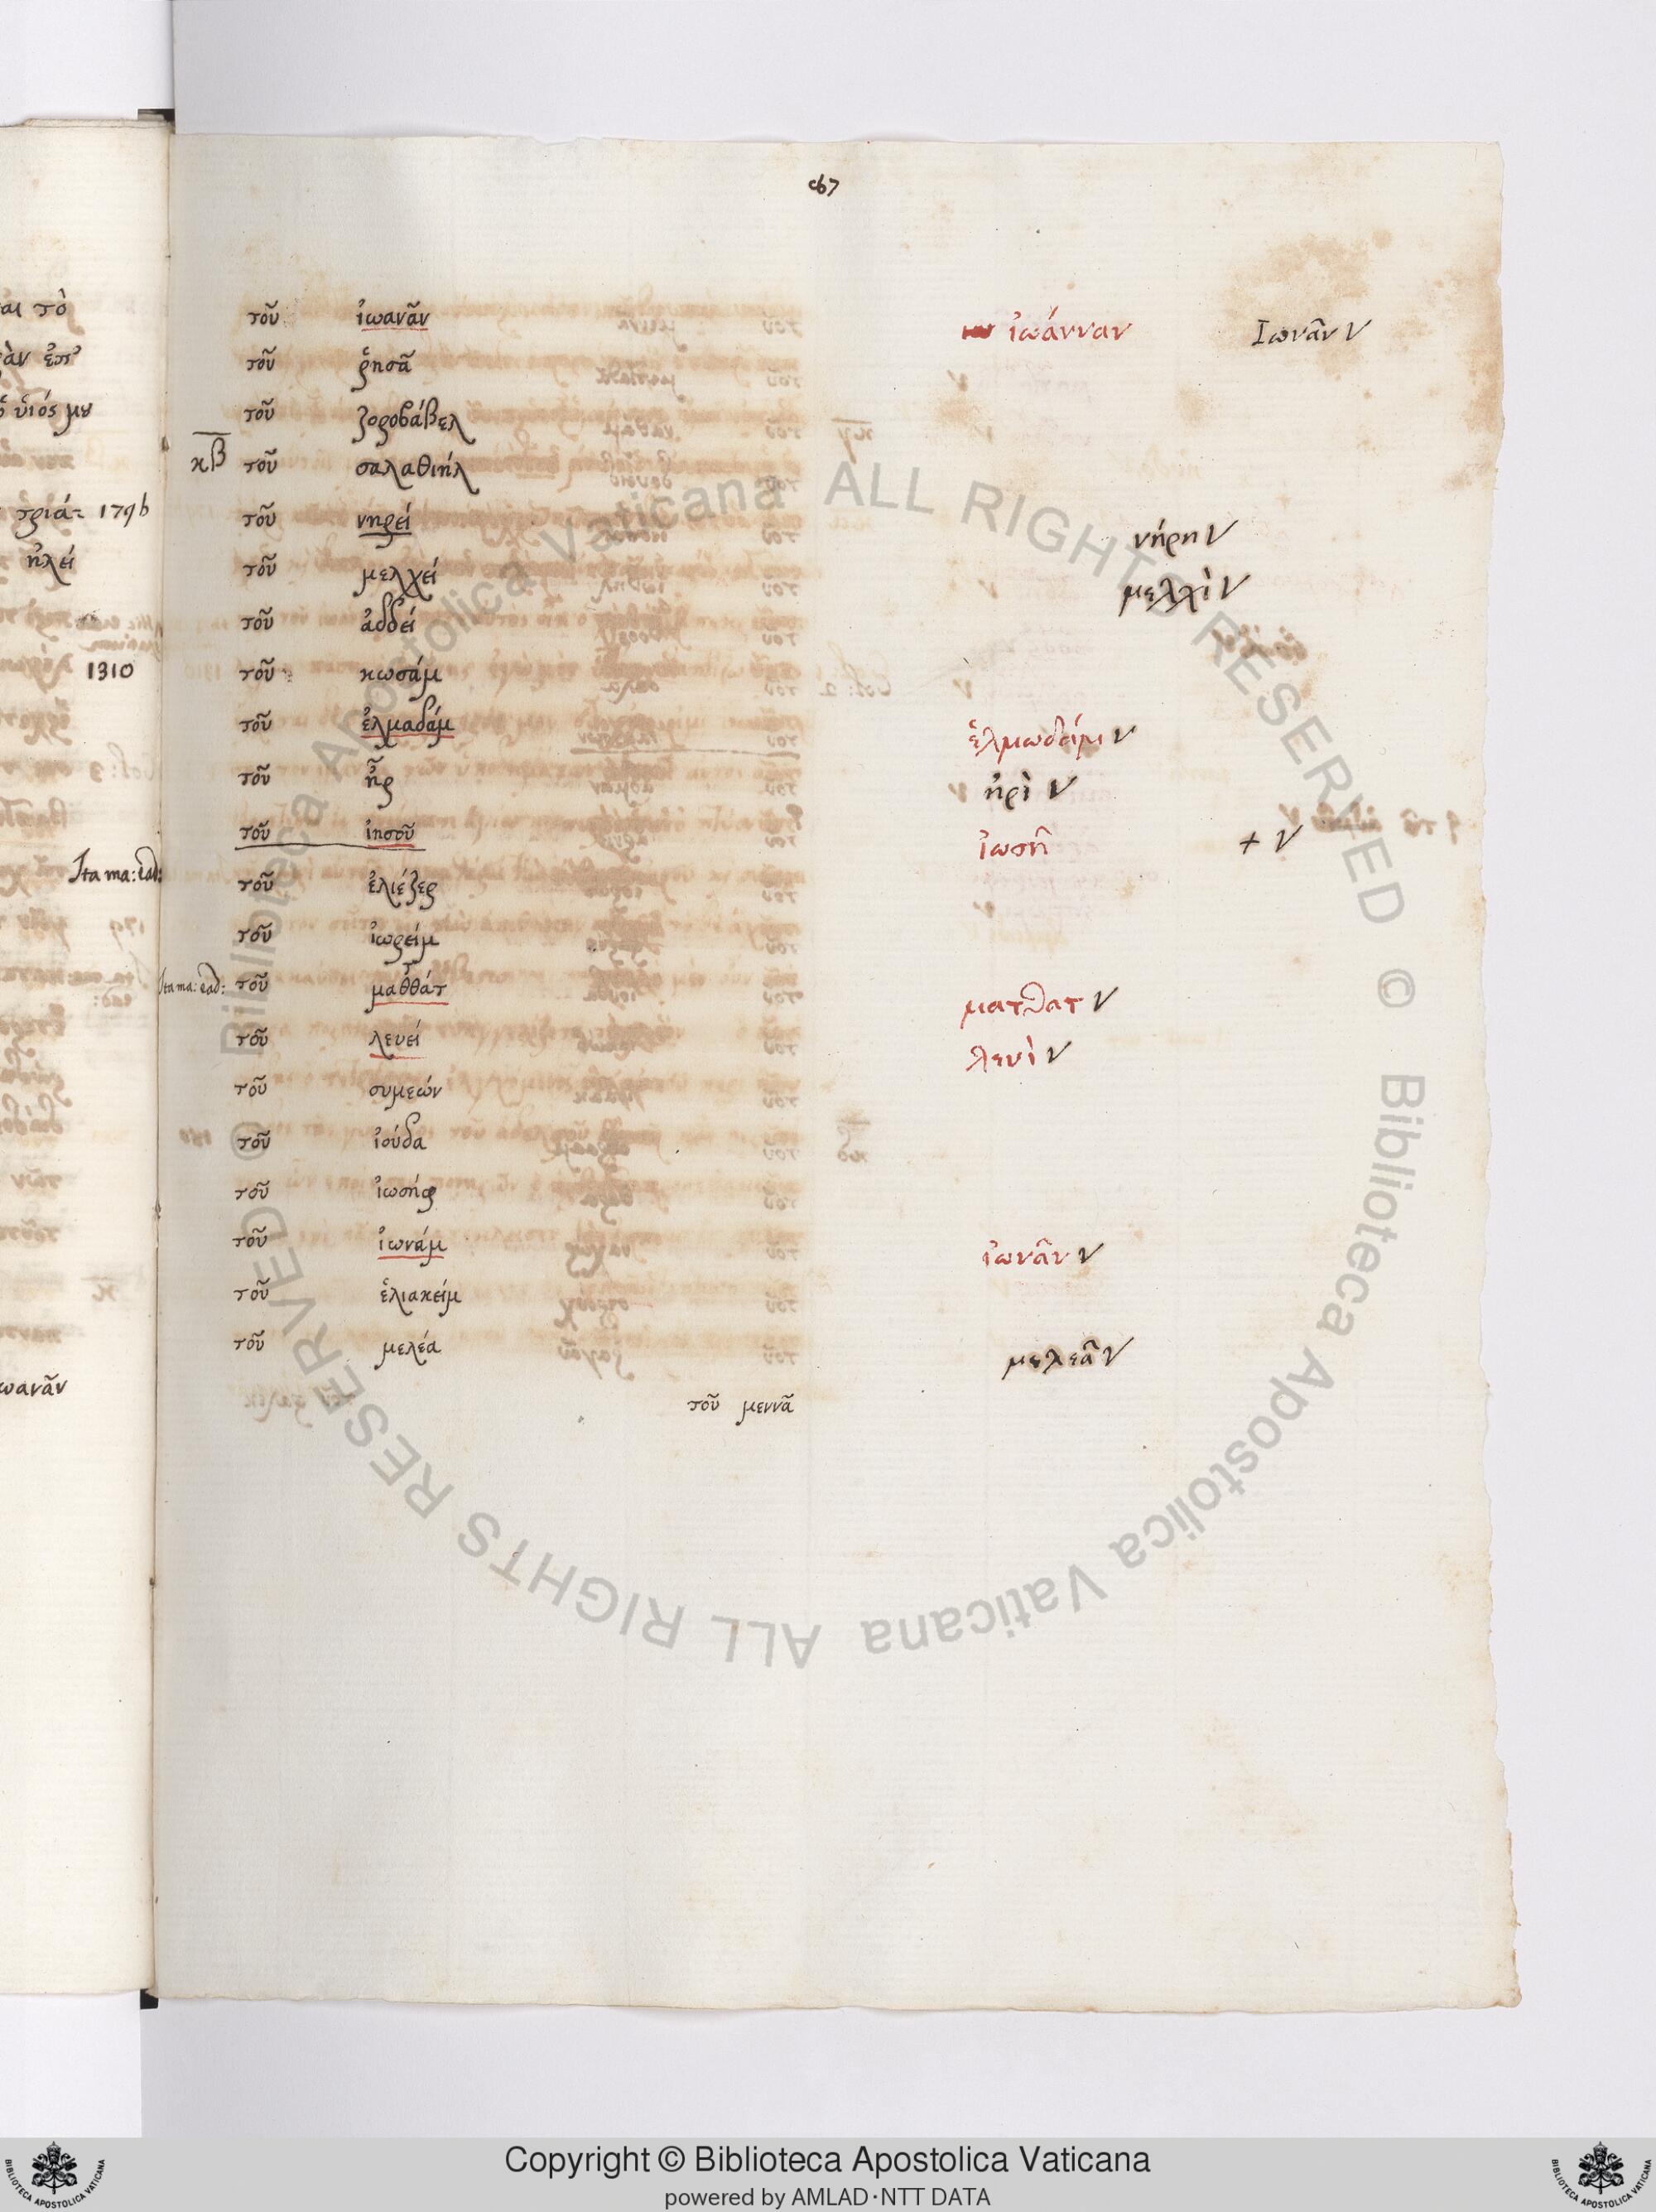 τοῦ ἰωανᾶν ἰωάνναν Ἰωνᾶν V
τοῦ ῥησᾶ
τοῦ ζοροβάβελ
κβ τοῦ σαλαθιήλ
τοῦ νηρεί νήρη V
τοῦ μελχεί μελχὶ V
τοῦ ἀδδεί
τοῦ κωσάμ
τοῦ ἐλμαδάμ ἐλμωδάμ V
τοῦ ἦρ ἠρὶ V
τοῦ ἰησοῦ ἰωσῆ + V
τοῦ ἐλιέζερ
τοῦ ἰωρείμ
Ita ma: ead: τοῦ μαθθάτ ματθατ V
τοῦ λευεί λευὶ V
τοῦ συμεών
τοῦ ἰούδα
τοῦ ἰωσήφ
τοῦ ἰωνάμ ἰωνᾶν V
τοῦ ἐλιακείμ
τοῦ μελέα μελεᾶ V
τοῦ μεννᾶ
αι τὸ
υἱός μου
τριά= 179b
ἠλεί
1310
Ita ma: ead:
ωανᾶν
© Biblioteca Apostolica Vaticana ALL RIGHTS RESERVED © Biblioteca Apostolica Vaticana ALL RIGHTS RESERVED
Copyright © Biblioteca Apostolica Vaticana
powered by AMLAD·NTT DATA
BIBLIOTECA APOSTOLICA VATICANA
BIBLIOTECA APOSTOLICA VATICANA